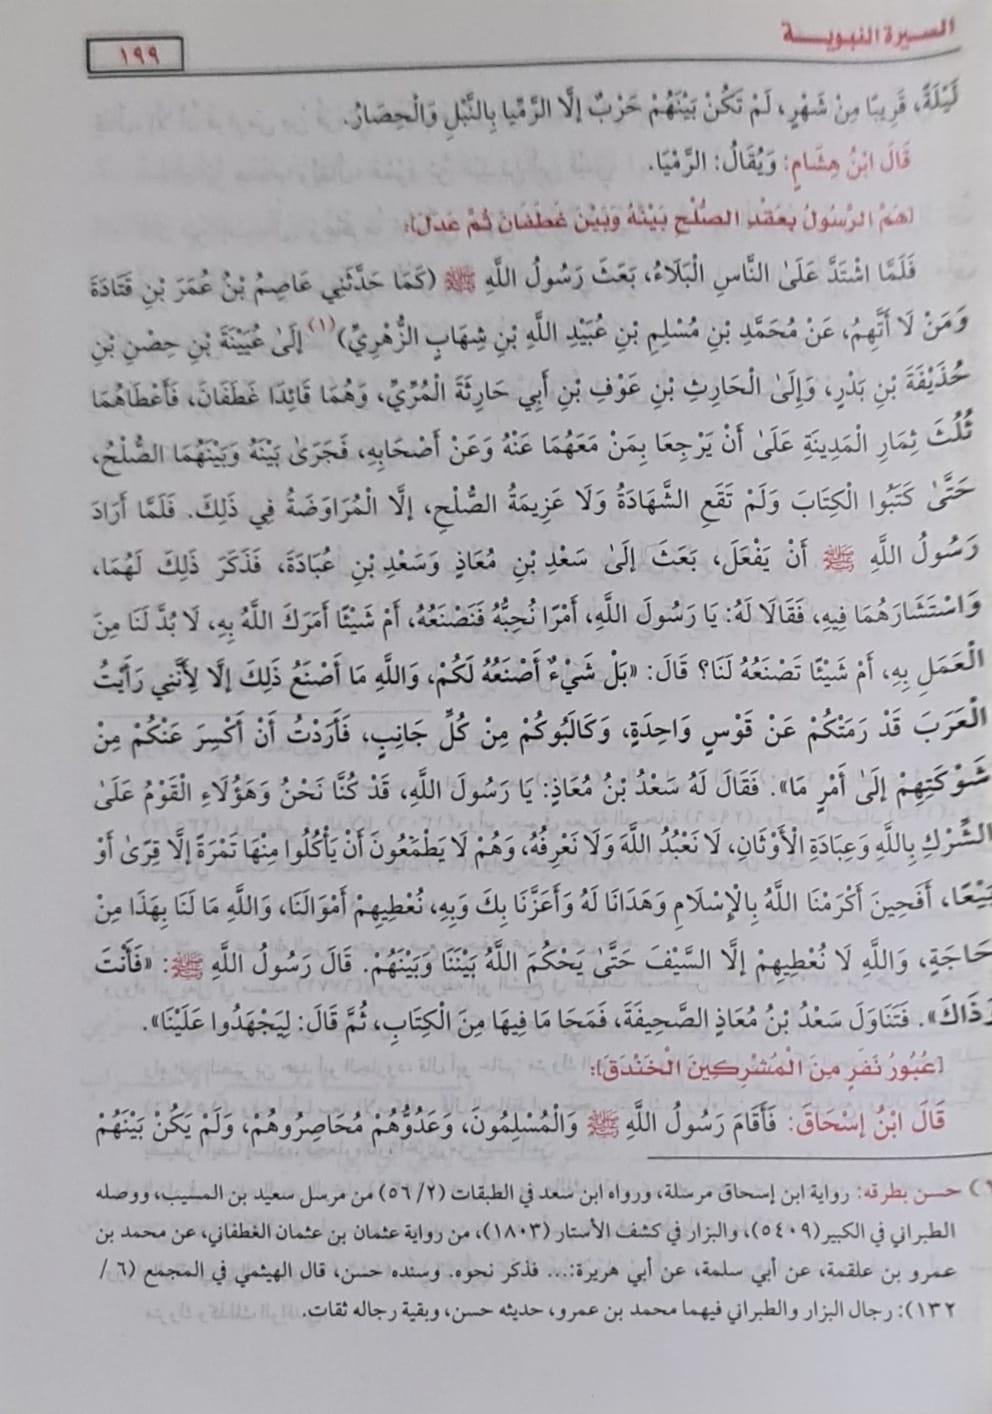 السيرة النبوية
١٩٩
لَيْلَةً، قَرِيبًا مِنْ شَهْرٍ، لَمْ تَكُنْ بَيْنَهُمْ حَرْبٌ إلَّا الرِّمِّيا بِالنَّبْلِ وَالْحِصَارُ.
قَالَ ابْنُ هِشَامٍ: وَيُقَالُ: الرَّمْيَا.
[هَمَّ الرَّسُولُ بِعَقْدِ الصُّلْحِ بَيْنَهُ وَبَيْنَ غَطَفَانَ ثُمَّ عَدَلَ]:
فَلَمَّا اشْتَدَّ عَلَىٰ النَّاسِ الْبَلَاءُ، بَعَثَ رَسُولُ اللَّهِ ﷺ (كَمَا حَدَّثَنِي عَاصِمُ بْنُ عُمَرَ بْنِ قَتَادَةَ
وَمَنْ لَا أَتَّهِمُ، عَنْ مُحَمَّدِ بْنِ مُسْلِمِ بْنِ عُبَيْدِ اللَّهِ بْنِ شِهَابٍ الزُّهْرِيِّ)(١) إلَىٰ عُيَيْنَةَ بْنِ حِصْنِ بْنِ
حُذَيْفَةَ بْنِ بَدْرٍ، وَإِلَىٰ الْحَارِثِ بْنِ عَوْفِ بْنِ أَبِي حَارِثَةَ الْمُرِّيِّ، وَهُمَا قَائِدَا غَطَفَانَ، فَأَعْطَاهُمَا
ثُلُثَ ثِمَارِ الْمَدِينَةِ عَلَىٰ أَنْ يَرْجِعَا بِمَنْ مَعَهُمَا عَنْهُ وَعَنْ أَصْحَابِهِ، فَجَرَىٰ بَيْنَهُ وَبَيْنَهُمَا الصُّلْحُ،
حَتَّىٰ كَتَبُوا الْكِتَابَ وَلَمْ تَقَعِ الشَّهَادَةُ وَلَا عَزِيمَةُ الصُّلْحِ، إلَّا الْمُرَاوَضَةُ فِي ذَلِكَ. فَلَمَّا أَرَادَ
رَسُولُ اللَّهِ ﷺ أَنْ يَفْعَلَ، بَعَثَ إلَىٰ سَعْدِ بْنِ مُعَاذٍ وَسَعْدِ بْنِ عُبَادَةَ، فَذَكَرَ ذَلِكَ لَهُمَا،
وَاسْتَشَارَهُمَا فِيهِ، فَقَالَا لَهُ: يَا رَسُولَ اللَّهِ، أَمْرًا نُحِبُّهُ فَنَصْنَعُهُ، أَمْ شَيْئًا أَمَرَكَ اللَّهُ بِهِ، لَا بُدَّ لَنَا مِنَ
الْعَمَلِ بِهِ، أَمْ شَيْئًا تَصْنَعُهُ لَنَا؟ قَالَ: «بَلْ شَيْءٌ أَصْنَعُهُ لَكُمْ، وَاللَّهِ مَا أَصْنَعُ ذَلِكَ إلَّا لِأَنَّنِي رَأَيْتُ
الْعَرَبَ قَدْ رَمَتْكُمْ عَنْ قَوْسٍ وَاحِدَةٍ، وَكَالَبُوكُمْ مِنْ كُلِّ جَانِبٍ، فَأَرَدْتُ أَنْ أَكْسِرَ عَنْكُمْ مِنْ
شَوْكَتِهِمْ إلَىٰ أَمْرٍ مَا». فَقَالَ لَهُ سَعْدُ بْنُ مُعَاذٍ: يَا رَسُولَ اللَّهِ، قَدْ كُنَّا نَحْنُ وَهَؤُلَاءِ الْقَوْمُ عَلَىٰ
الشِّرْكِ بِاللَّهِ وَعِبَادَةِ الْأَوْثَانِ، لَا نَعْبُدُ اللَّهَ وَلَا نَعْرِفُهُ، وَهُمْ لَا يَطْمَعُونَ أَنْ يَأْكُلُوا مِنْهَا تَمْرَةً إلَّا قِرًى أَوْ
بَيْعًا، أَفَحِينَ أَكْرَمَنَا اللَّهُ بِالْإِسْلَامِ وَهَدَانَا لَهُ وَأَعَزَّنَا بِكَ وَبِهِ، نُعْطِيهِمْ أَمْوَالَنَا، وَاللَّهِ مَا لَنَا بِهَذَا مِنْ
حَاجَةٍ، وَاللَّهِ لَا نُعْطِيهِمْ إلَّا السَّيْفَ حَتَّىٰ يَحْكُمَ اللَّهُ بَيْنَنَا وَبَيْنَهُمْ. قَالَ رَسُولُ اللَّهِ ﷺ: «فَأَنْتَ
وَذَاكَ». فَتَنَاوَلَ سَعْدُ بْنُ مُعَاذٍ الصَّحِيفَةَ، فَمَحَا مَا فِيهَا مِنَ الْكِتَابِ، ثُمَّ قَالَ: لِيَجْهَدُوا عَلَيْنَا».
[عُبُورُ نَفَرٍ مِنَ الْمُشْرِكِينَ الْخَنْدَقَ]:
قَالَ ابْنُ إسْحَاقَ: فَأَقَامَ رَسُولُ اللَّهِ ﷺ وَالْمُسْلِمُونَ، وَعَدُوُّهُمْ مُحَاصِرُوهُمْ، وَلَمْ يَكُنْ بَيْنَهُمْ
(١) حسن بطرقه: رواية ابن إسحاق مرسلة، ورواه ابن سعد في الطبقات (٢/ ٥٦) من مرسل سعيد بن المسيب، ووصله
الطبراني في الكبير (٥٤٠٩)، والبزار في كشف الأستار (١٨٠٣)، من رواية عثمان بن عثمان الغطفاني، عن محمد بن
عمرو بن علقمة، عن أبي سلمة، عن أبي هريرة:... فذكر نحوه. وسنده حسن، قال الهيثمي في المجمع (٦ /
١٣٢): رجال البزار والطبراني فيهما محمد بن عمرو، حديثه حسن، وبقية رجاله ثقات.